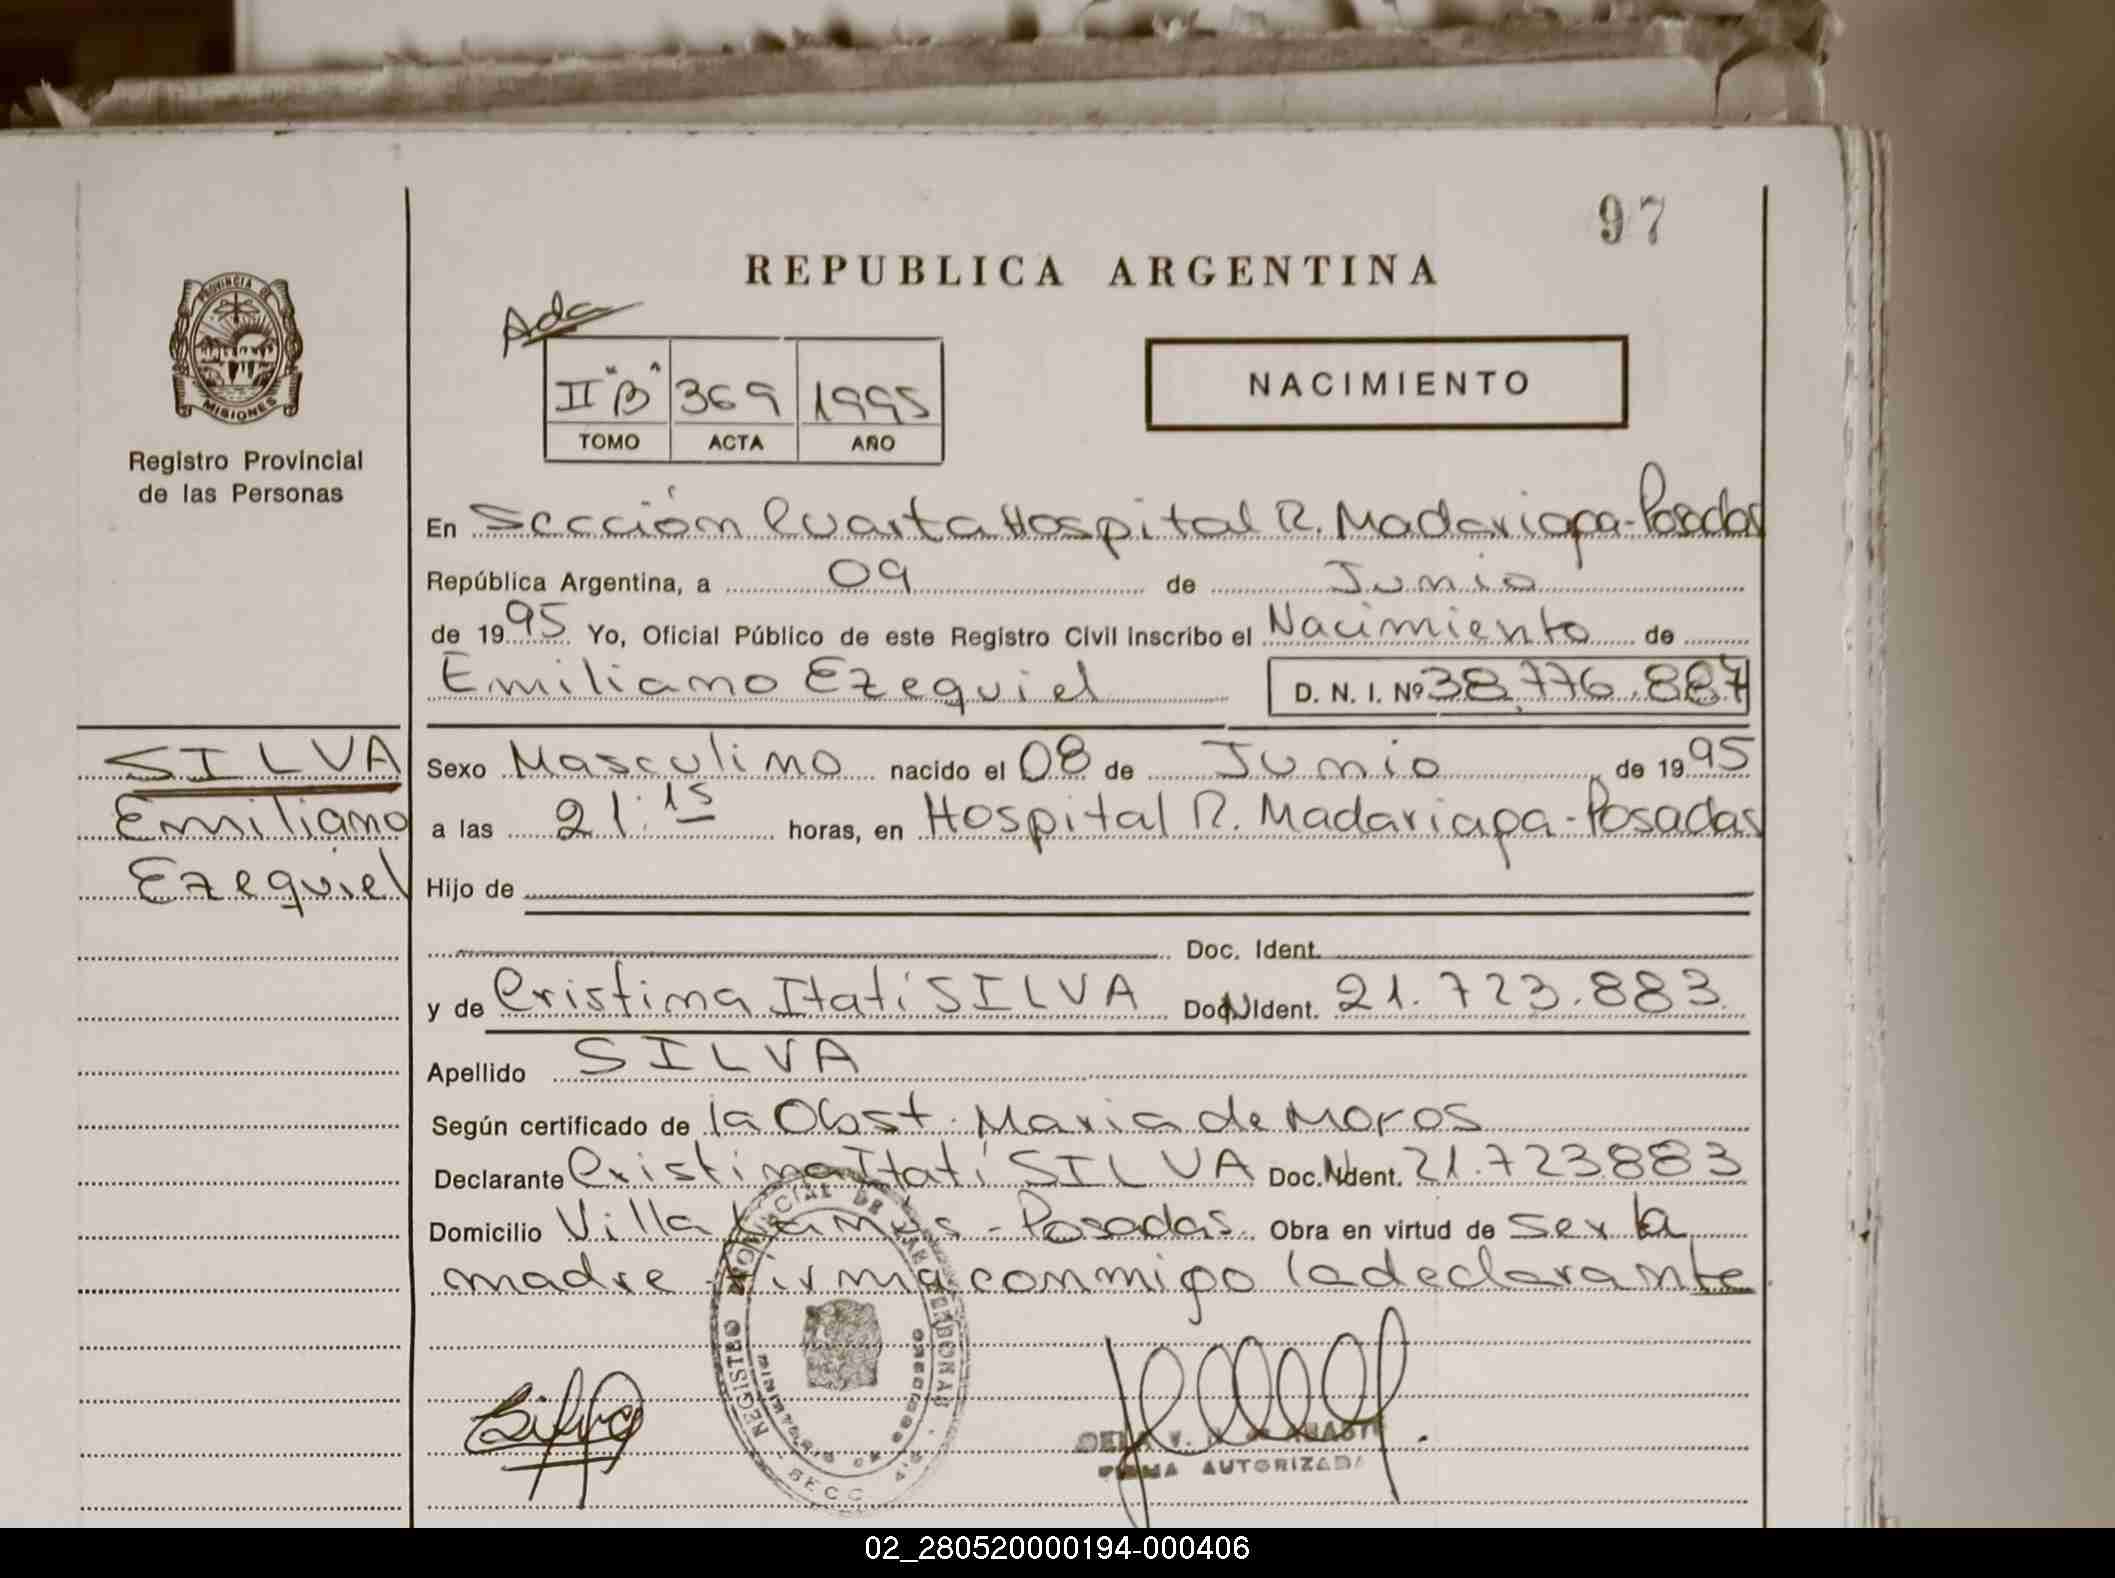 97
REPUBLICA ARGENTINA
Ada
PROVINCIA DE
MISIONES
Registro Provincial
de las Personas
II "B" 369 1995
TOMO ACTA AÑO
NACIMIENTO
En Sección Cuarta Hospital R. Madariaga-Posadas
República Argentina, a 09 de Junio
de 1995 Yo, Oficial Público de este Registro Civil inscribo el Nacimiento de
Emiliano Ezequiel D. N. I. Nº 38.776.887
SILVA
Emiliano
Ezequiel
Sexo Masculino nacido el 08 de Junio de 1995
a las 21:15 horas, en Hospital R. Madariaga-Posadas
Hijo de
Doc. Ident.
y de Cristina Itatí SILVA Doc. Ident. 21.723.883
Apellido SILVA
Según certificado de la Obst. Maria de Moros
Declarante Cristina Itatí SILVA Doc. Ident. 21.723.883
Domicilio Villa - Posadas. Obra en virtud de ser la
madre firma conmigo la declarante
REGISTRO PROVINCIAL DE LAS PERSONAS
SECC
Silva
FIRMA AUTORIZADA
02_280520000194-000406